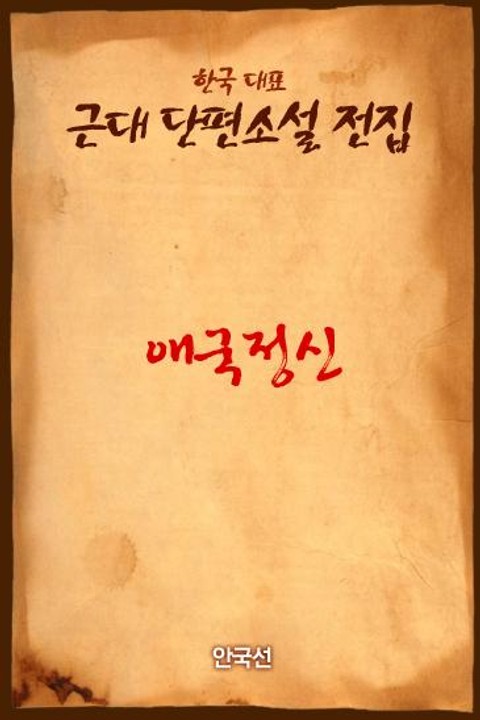 한국 대표
근대 단편소설 전집
애국정신
안국선